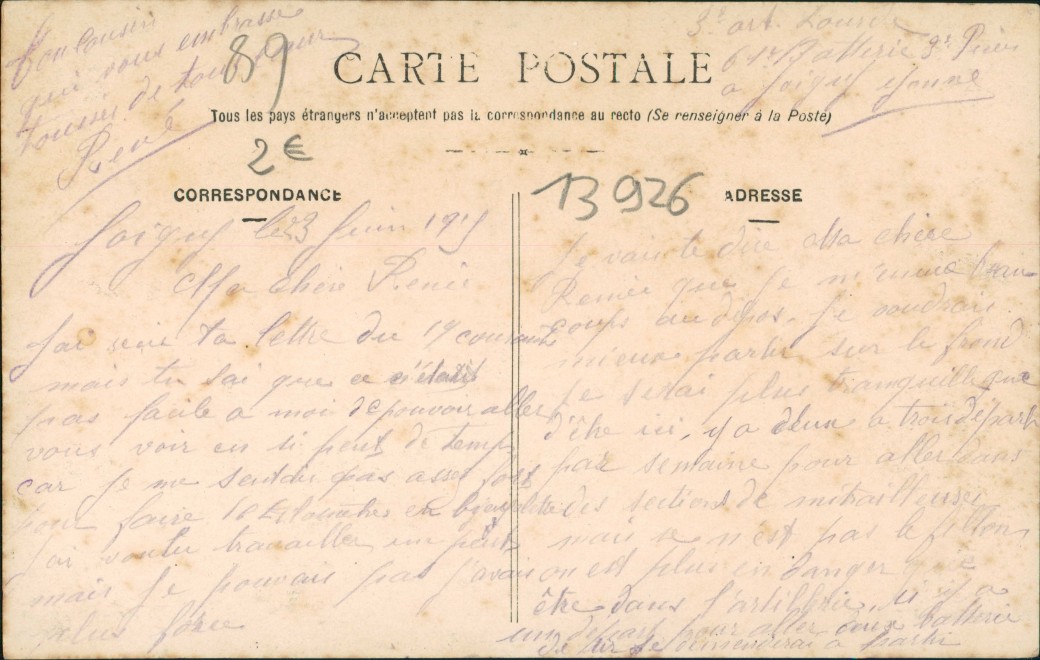 Ton cousin
qui vous embrasse
tousses de tout cœur
René
89
3e art. Lourde
61e Batterie 8e Pièce
a Joigny Yonne
CARTE POSTALE
Tous les pays étrangers n'acceptent pas la correspondance au recto (Se renseigner à la Poste)
2€
13926
CORRESPONDANCE
Joigny le 23 Juin 1915
Ma chère Renée
J'ai reçu ta lettre du 19 courant
mais tu sai que ce n'étais
pas facile a moi de pouvoir aller
vous voir en si peut de temp
car je me sentais pas assez fort
pour faire 16 Kilomètres en bicyclette
J'ai voulu travailler un peut
mais je pouvais pas j'avais
plus force
ADRESSE
Je vais te dire Ma chère
Renée que je m'ennuie beau
coups au dépos. Je voudrais
mieux partir sur le frond
je serai plus tranquille que
d'être ici, y a deux a trois départ
par semaine pour aller dans
des sections de mitrailleuses
mais se n'est pas le filon
on est plus en danger que
être dans l'artillerie, si y a
un départ pour aller aux batterie
de tir je demenderai a partir